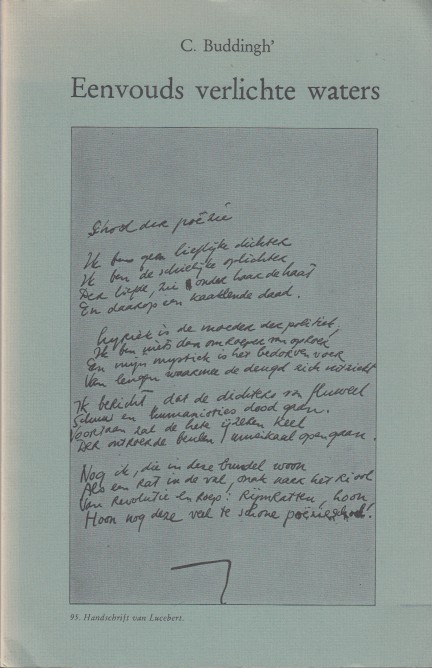 C. Buddingh'
Eenvouds verlichte waters
School der poëzie
Ik ben geen lieflijke dichter
Ik ben de schielijke oplichter
Der liefde, zie onder haar de haat
En daarop een kaaklende daad.
Lyriek is de moeder der politiek,
Ik ben niets dan omroeper van oproer
En mijn mystiek is het bedorven voer
Van leugen waarmee de deugd zich uitziekt
Ik bericht, dat de dichters van fluweel
Schuw en humanisties dood gaan.
Voortaan zal de hete ijzeren keel
Der ontroerde beulen muzikaal opengaan.
Nog ik, die in deze bundel woon
Als een rat in de val, snak naar het riool
Van revolutie en roep: Rijmratten, hoon
Hoon nog deze veel te schone poëzieschool!
93. Handschrift van Lucebert.